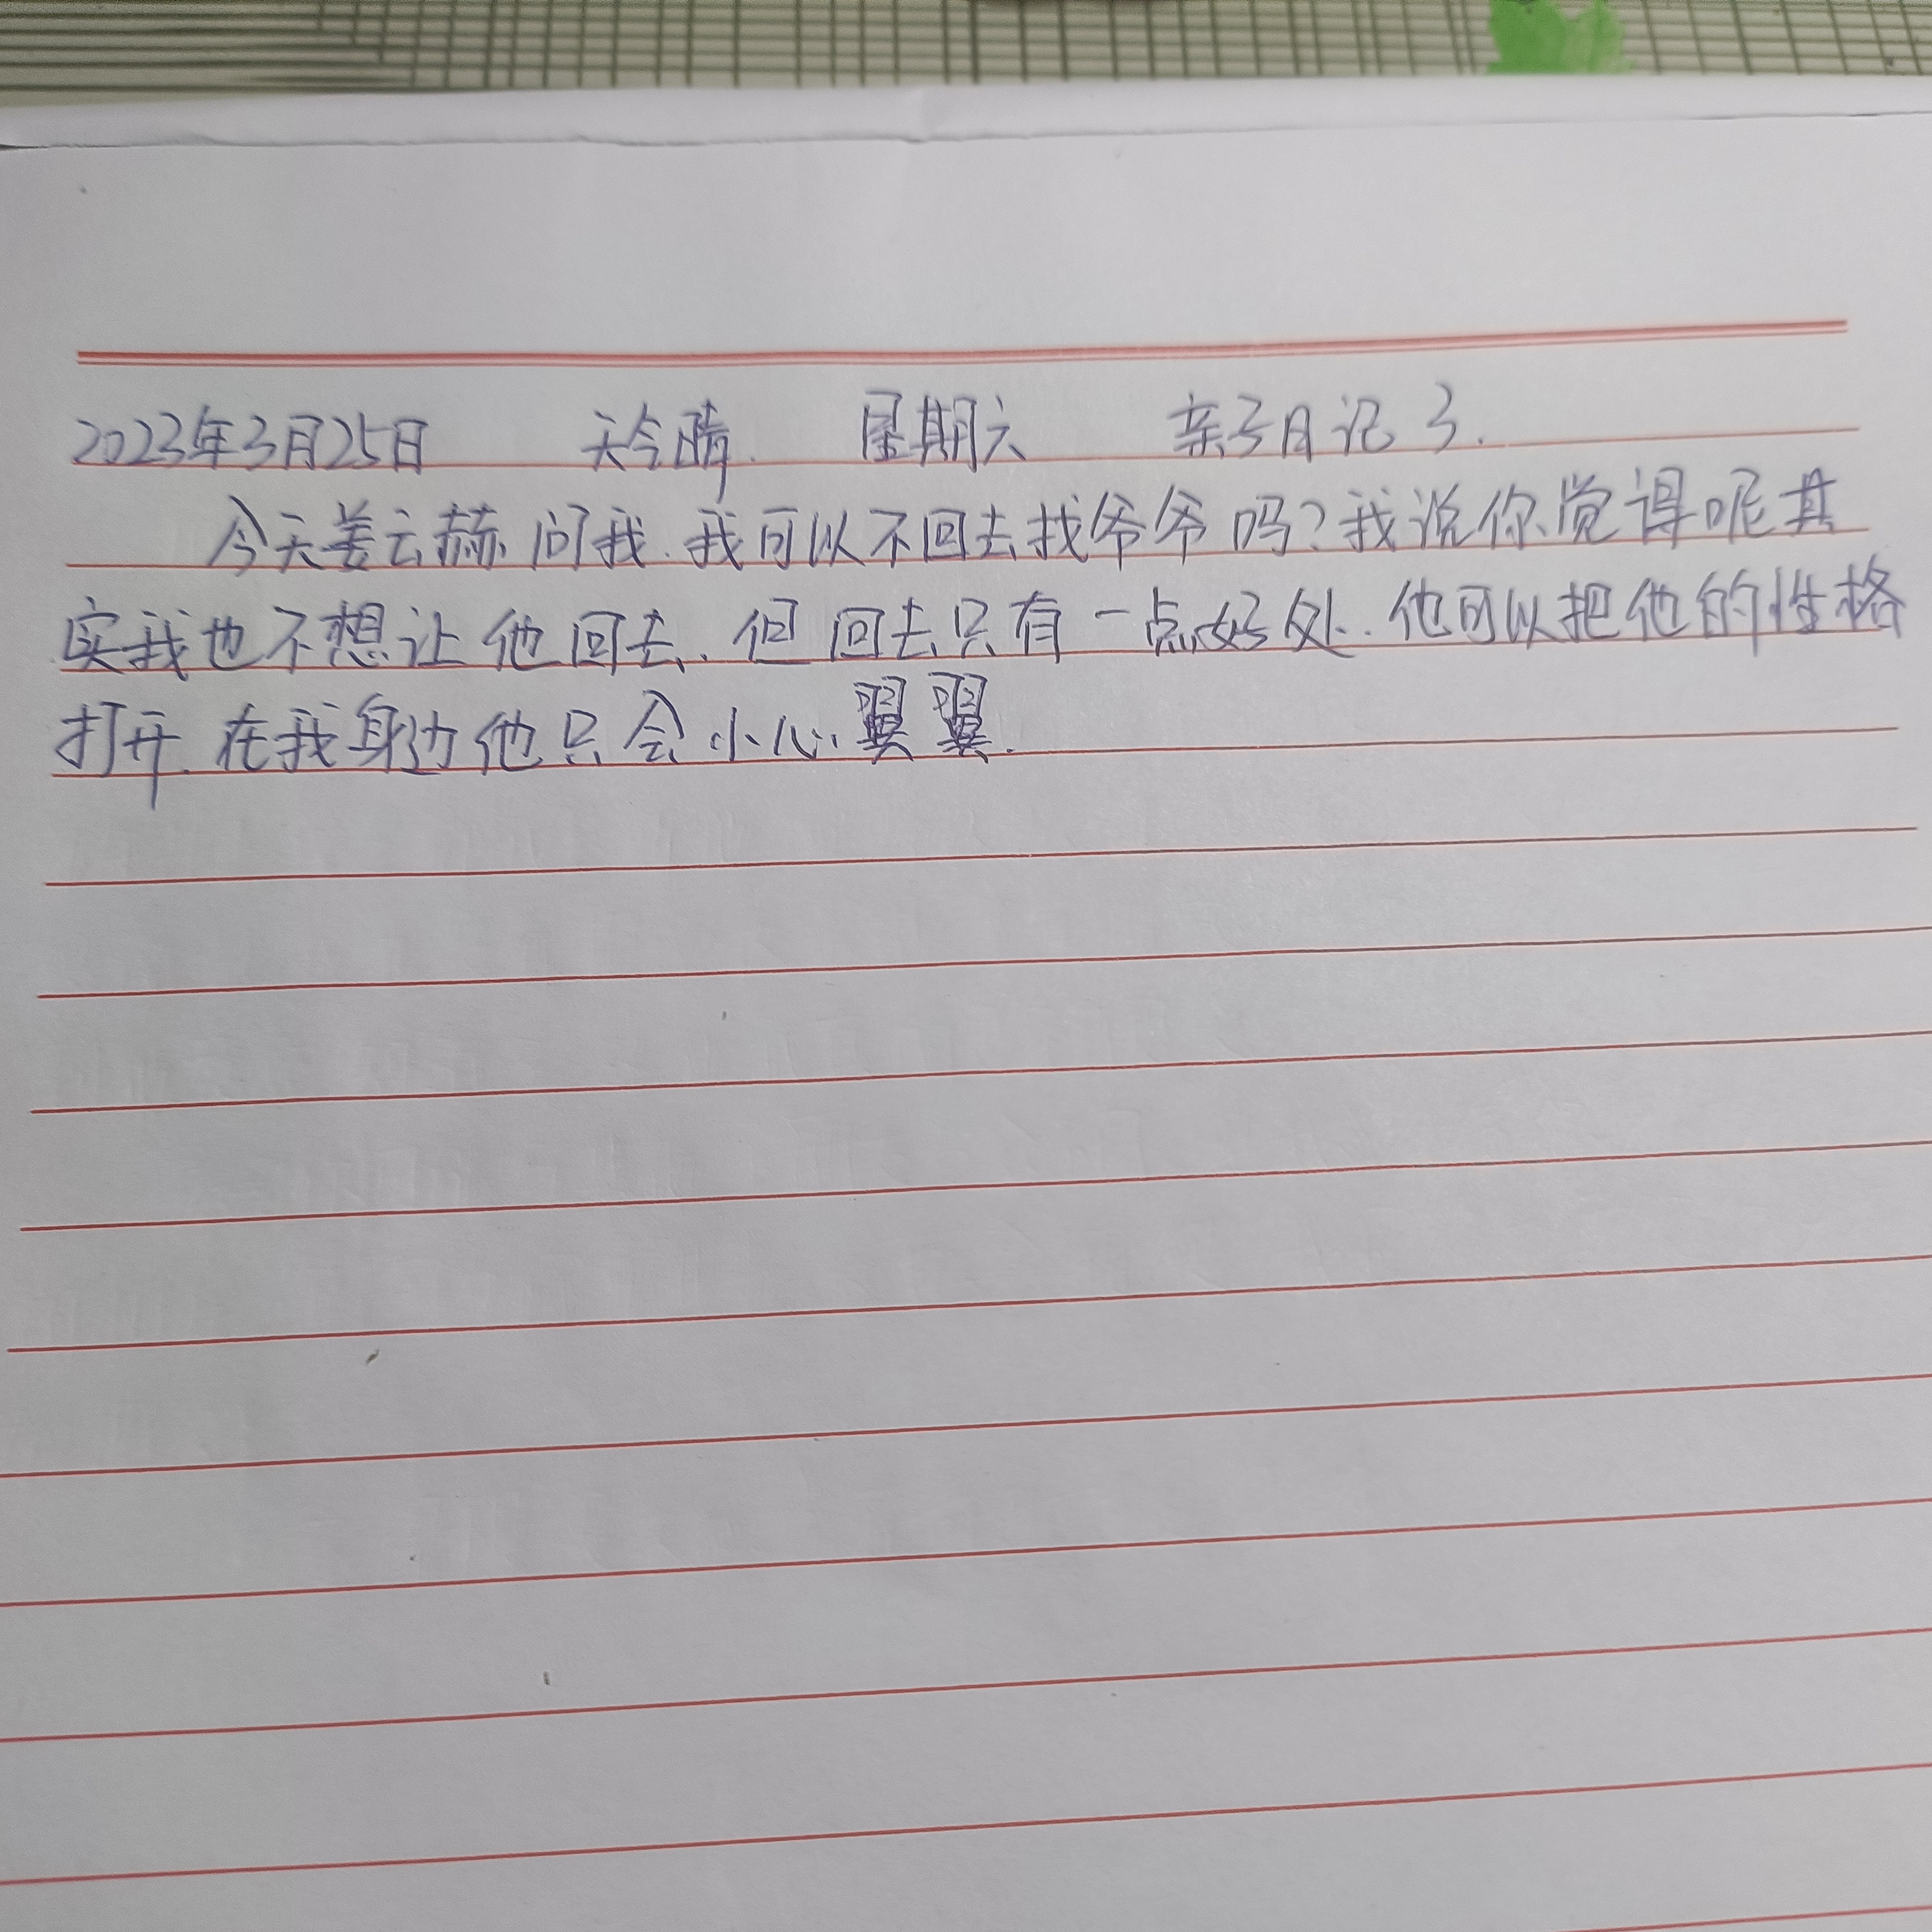 2023年3月25日 天气晴. 星期六 亲子日记3.
今天姜云赫问我.我可以不回去找爷爷吗?我说你觉得呢其
实我也不想让他回去.但回去只有一点好处.他可以把他的性格
打开.在我身边他只会小心翼翼.